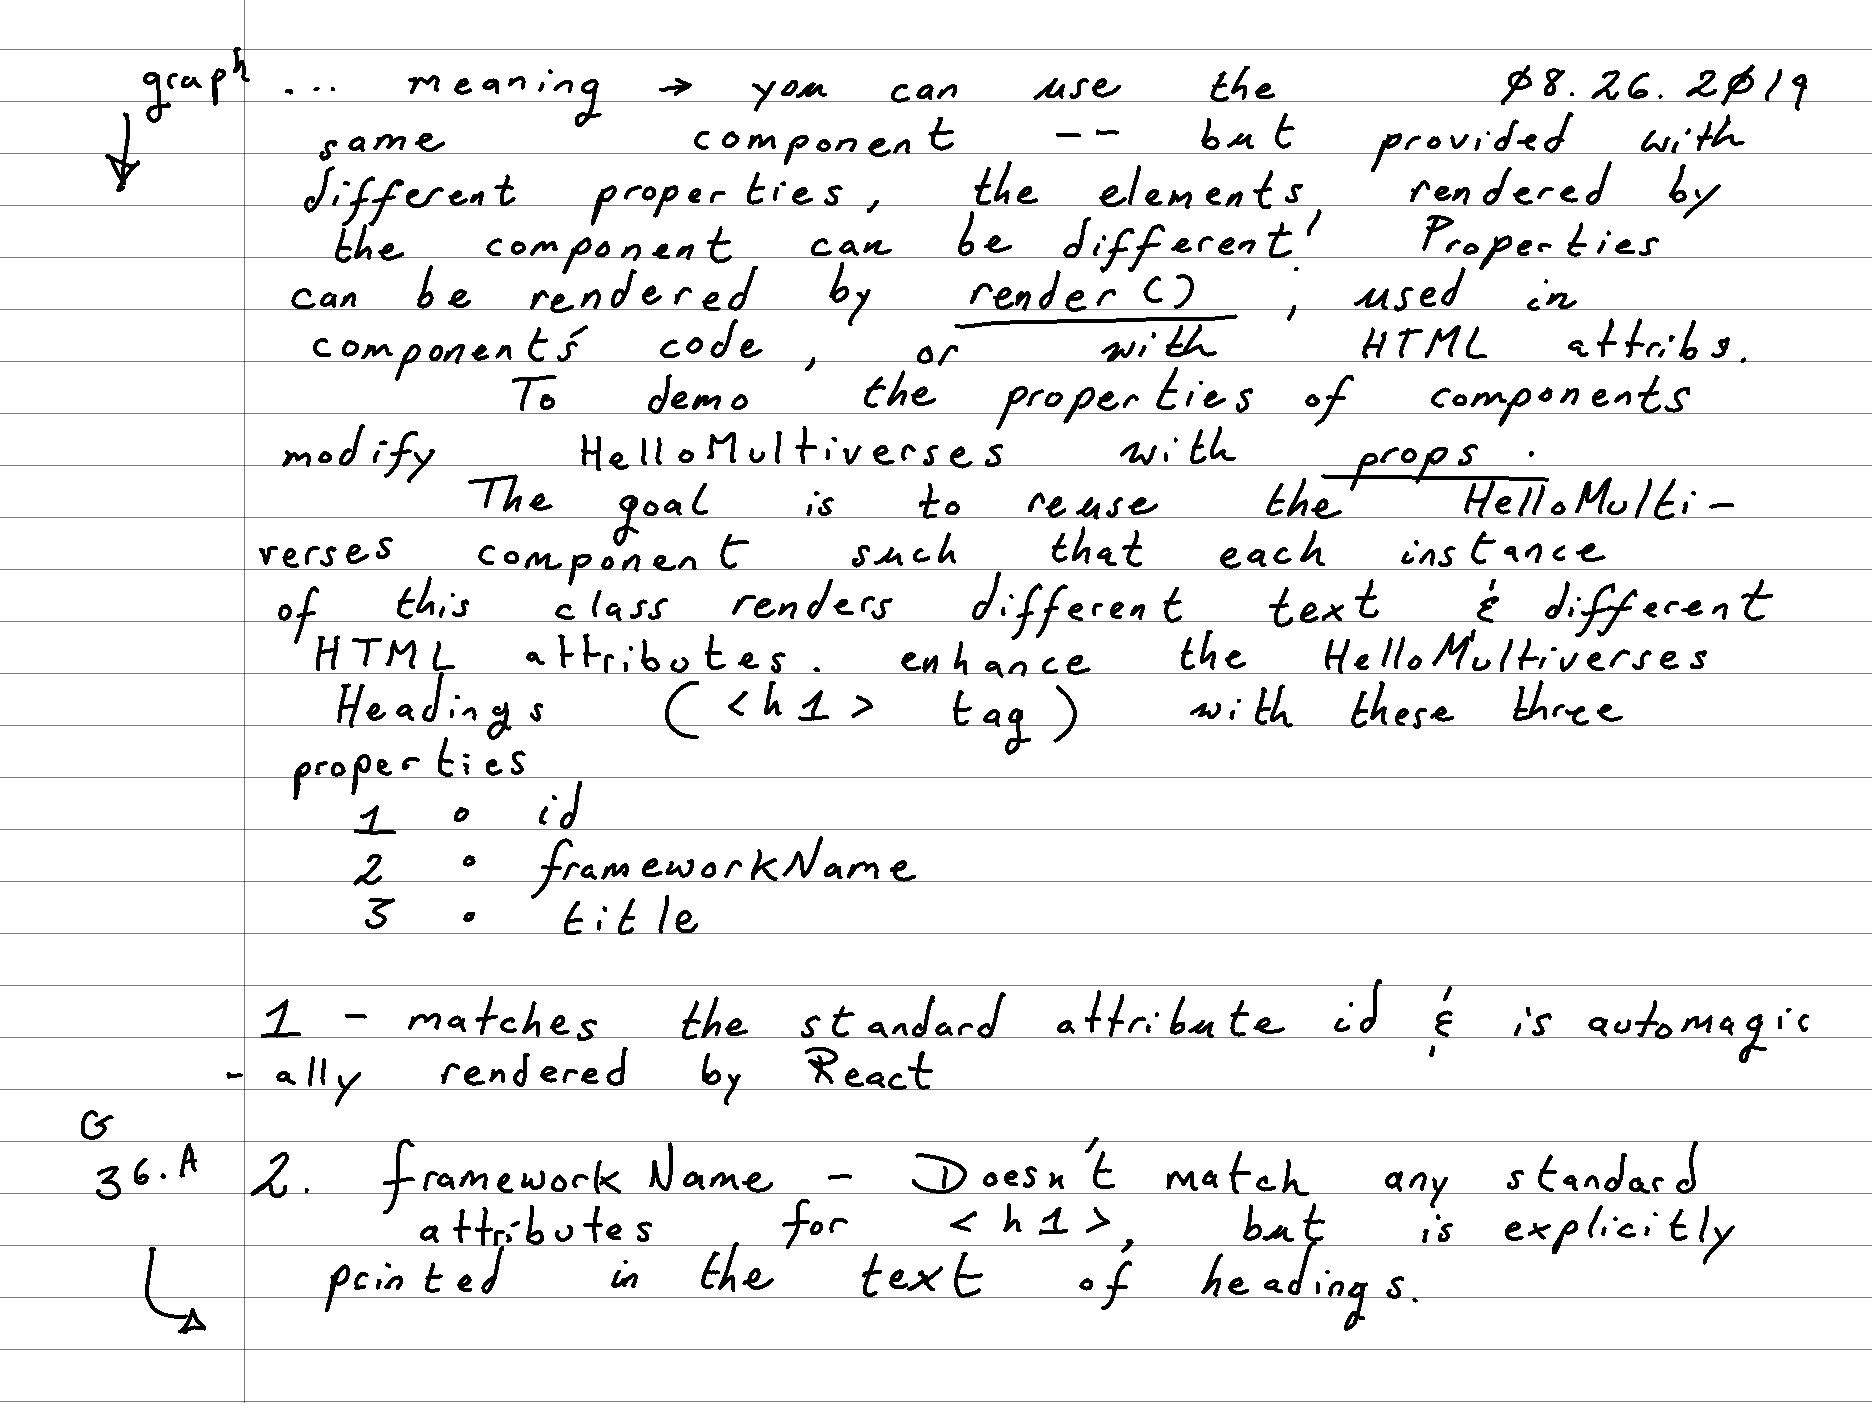 graph ... meaning → you can use the Ø8.26.2Ø19
same component -- but provided with
different properties, the elements, rendered by
the component can be different! Properties
can be rendered by render(), used in
component's code, or with HTML attribs.
To demo the properties of components
modify HelloMultiverses with props.
The goal is to reuse the HelloMulti-
verses component such that each instance
of this class renders different text & different
HTML attributes. enhance the HelloMultiverses
Headings (<h1> tag) with these three
properties
1 • id
2 • frameworkName
3 • title
1 - matches the standard attribute id & is automagic
- ally rendered by React
G
36.A 2. frameworkName - Doesn't match any standard
attributes for <h1>, but is explicitly
printed in the text of headings.